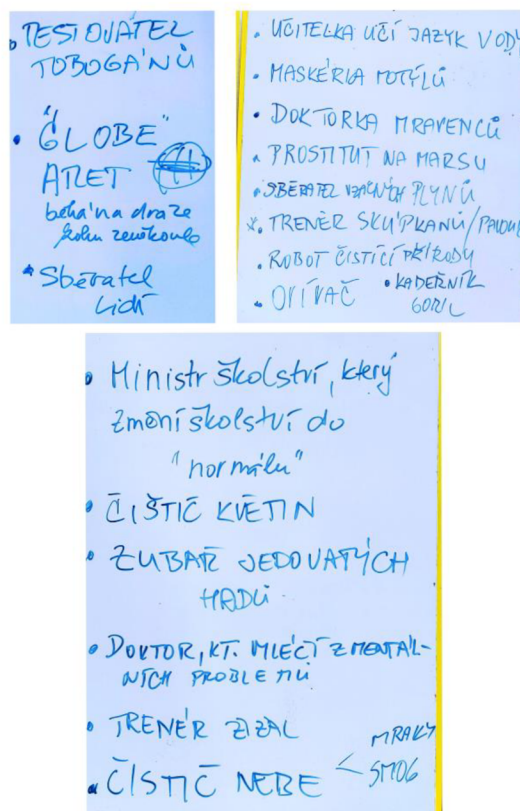 • TESTOVATEL
TOBOGÁNŮ
• "GLOBE"
ATLET
běhá na dráze
kolu zeměkoule
• Sběratel
lidí
• UČITELKA UČÍ JAZYK VODY
• MASKÉRKA MOTÝLŮ
• DOKTORKA MRAVENCŮ
• PROSTITUT NA MARSU
• SBĚRATEL VZÁCNÝCH PLYNŮ
• TRENÉR SKLÍPKANŮ/PAVOUKŮ
• ROBOT ČISTÍCÍ PŘÍRODY
• OVÍVAČ • KADEŘNÍK
GORIL
• Ministr školství, který
změní školství do
"normálu"
• ČISTIČ KVĚTIN
• ZUBAŘ JEDOVATÝCH
HADŮ
• DOKTOR, KT. MLÉČÍ Z MENTÁL-
NÍCH PROBLEMŮ
• TRENÉR ŽÍŽAL
• ČISTIČ NEBE < MRAKY
SMOG